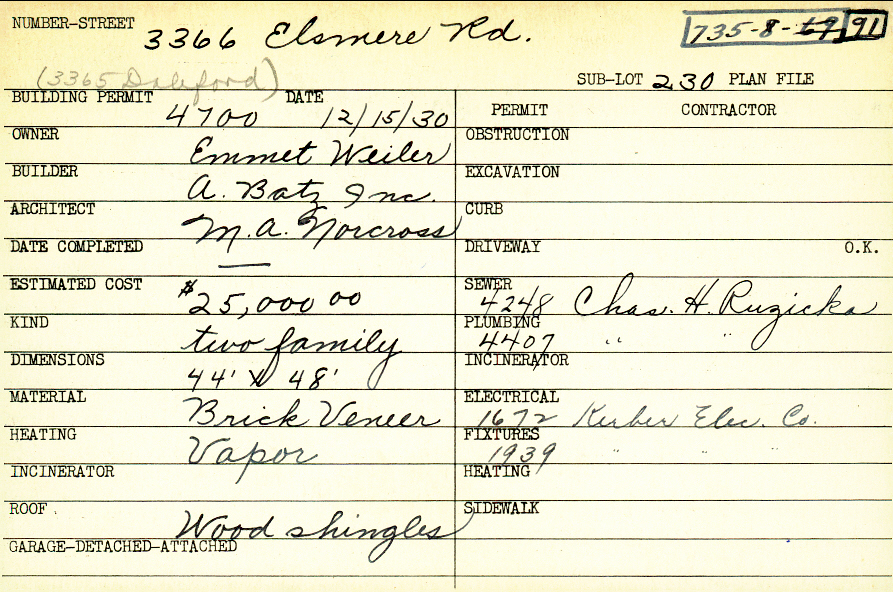 NUMBER-STREET 3366 Elsmere Rd. 735-8-69 91
(3365 Daleford)
SUB-LOT 230 PLAN FILE
BUILDING PERMIT 4700 DATE 12/15/30
OWNER Emmet Weiler
BUILDER A. Batz Inc.
ARCHITECT M.A. Norcross
DATE COMPLETED —
ESTIMATED COST $25,000 00
KIND two family
DIMENSIONS 44' X 48'
MATERIAL Brick Veneer
HEATING Vapor
INCINERATOR
ROOF Wood shingles
GARAGE-DETACHED-ATTACHED
PERMIT CONTRACTOR
OBSTRUCTION
EXCAVATION
CURB
DRIVEWAY O.K.
SEWER 4248 Chas. H. Ruzicka
PLUMBING 4407 " "
INCINERATOR
ELECTRICAL 1672 Kerber Elec. Co.
FIXTURES 1939 " "
HEATING
SIDEWALK